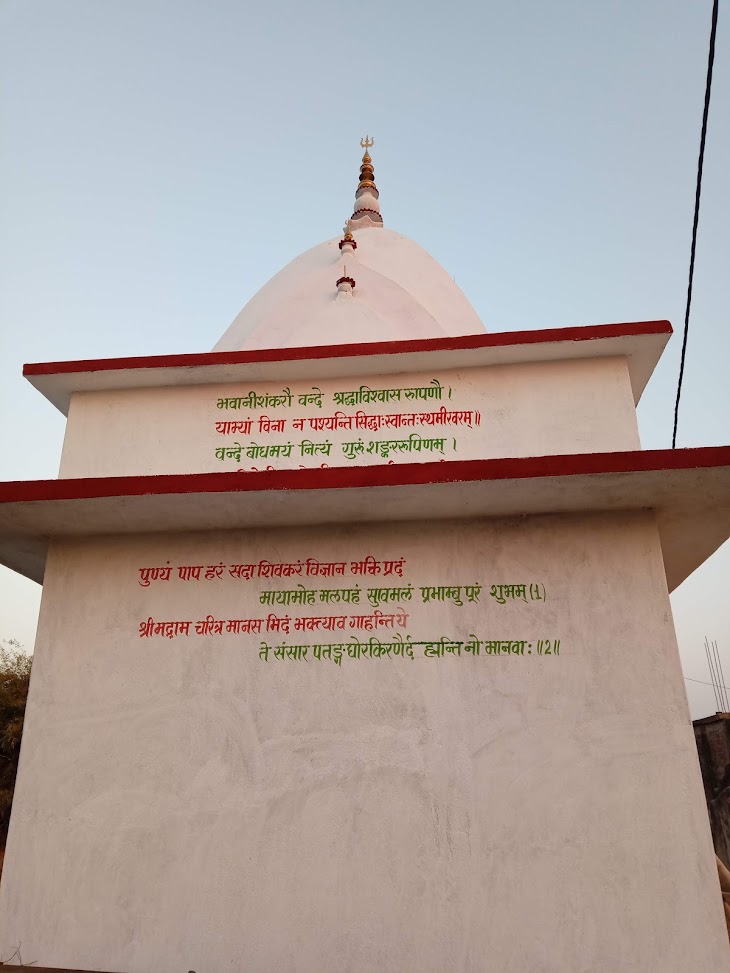 भवानीशंकरौ वन्दे श्रद्धाविश्वास रुपणौ।
याभ्यां विना न पश्यन्ति सिद्धाःस्वान्तःस्थमीश्वरम्॥
वन्दे बोधमयं नित्यं गुरूं शङ्कररूपिणम्।
पुण्यं पाप हरं सदा शिवकरं विज्ञान भक्ति प्रदं
मायामोह मलपहं सुवमलं प्रभाम्बु पूरं शुभम् (1)
श्रीमद्राम चरित्र मानस मिदं भक्त्याव गाहन्ति ये
ते संसार पतङ्ग घोरकिरणैर्द ह्यन्ति नो मानवाः ॥2॥